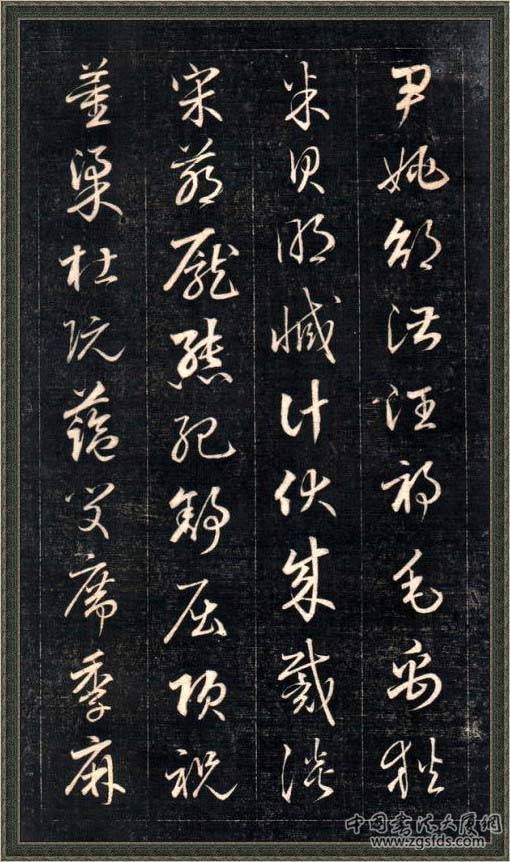 尹姚邵湛汪祁毛禹狄
米貝明臧計伏成戴談
宋茅龐熊紀舒屈項祝
董梁杜阮藍閔席季麻
中國書法大廈網
www.zgsfds.com